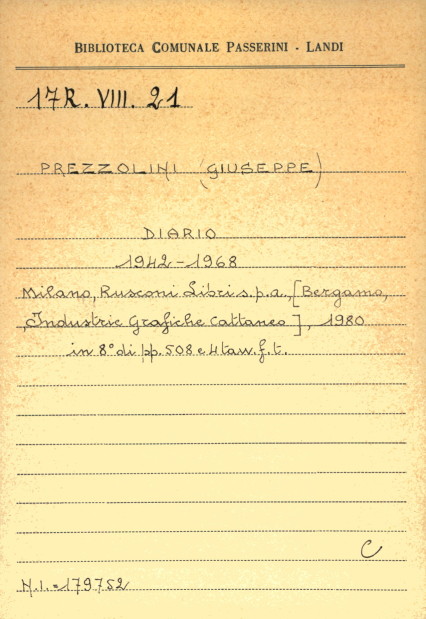 BIBLIOTECA COMUNALE PASSERINI - LANDI
17R. VIII. 21
PREZZOLINI (GIUSEPPE)
DIARIO
1942-1968
Milano, Rusconi Libri s.p.a., [Bergamo,
Industrie Grafiche Cattaneo], 1980
in 8° di pp. 508 e 4 tav. f.t.
C
N.I. = 179752